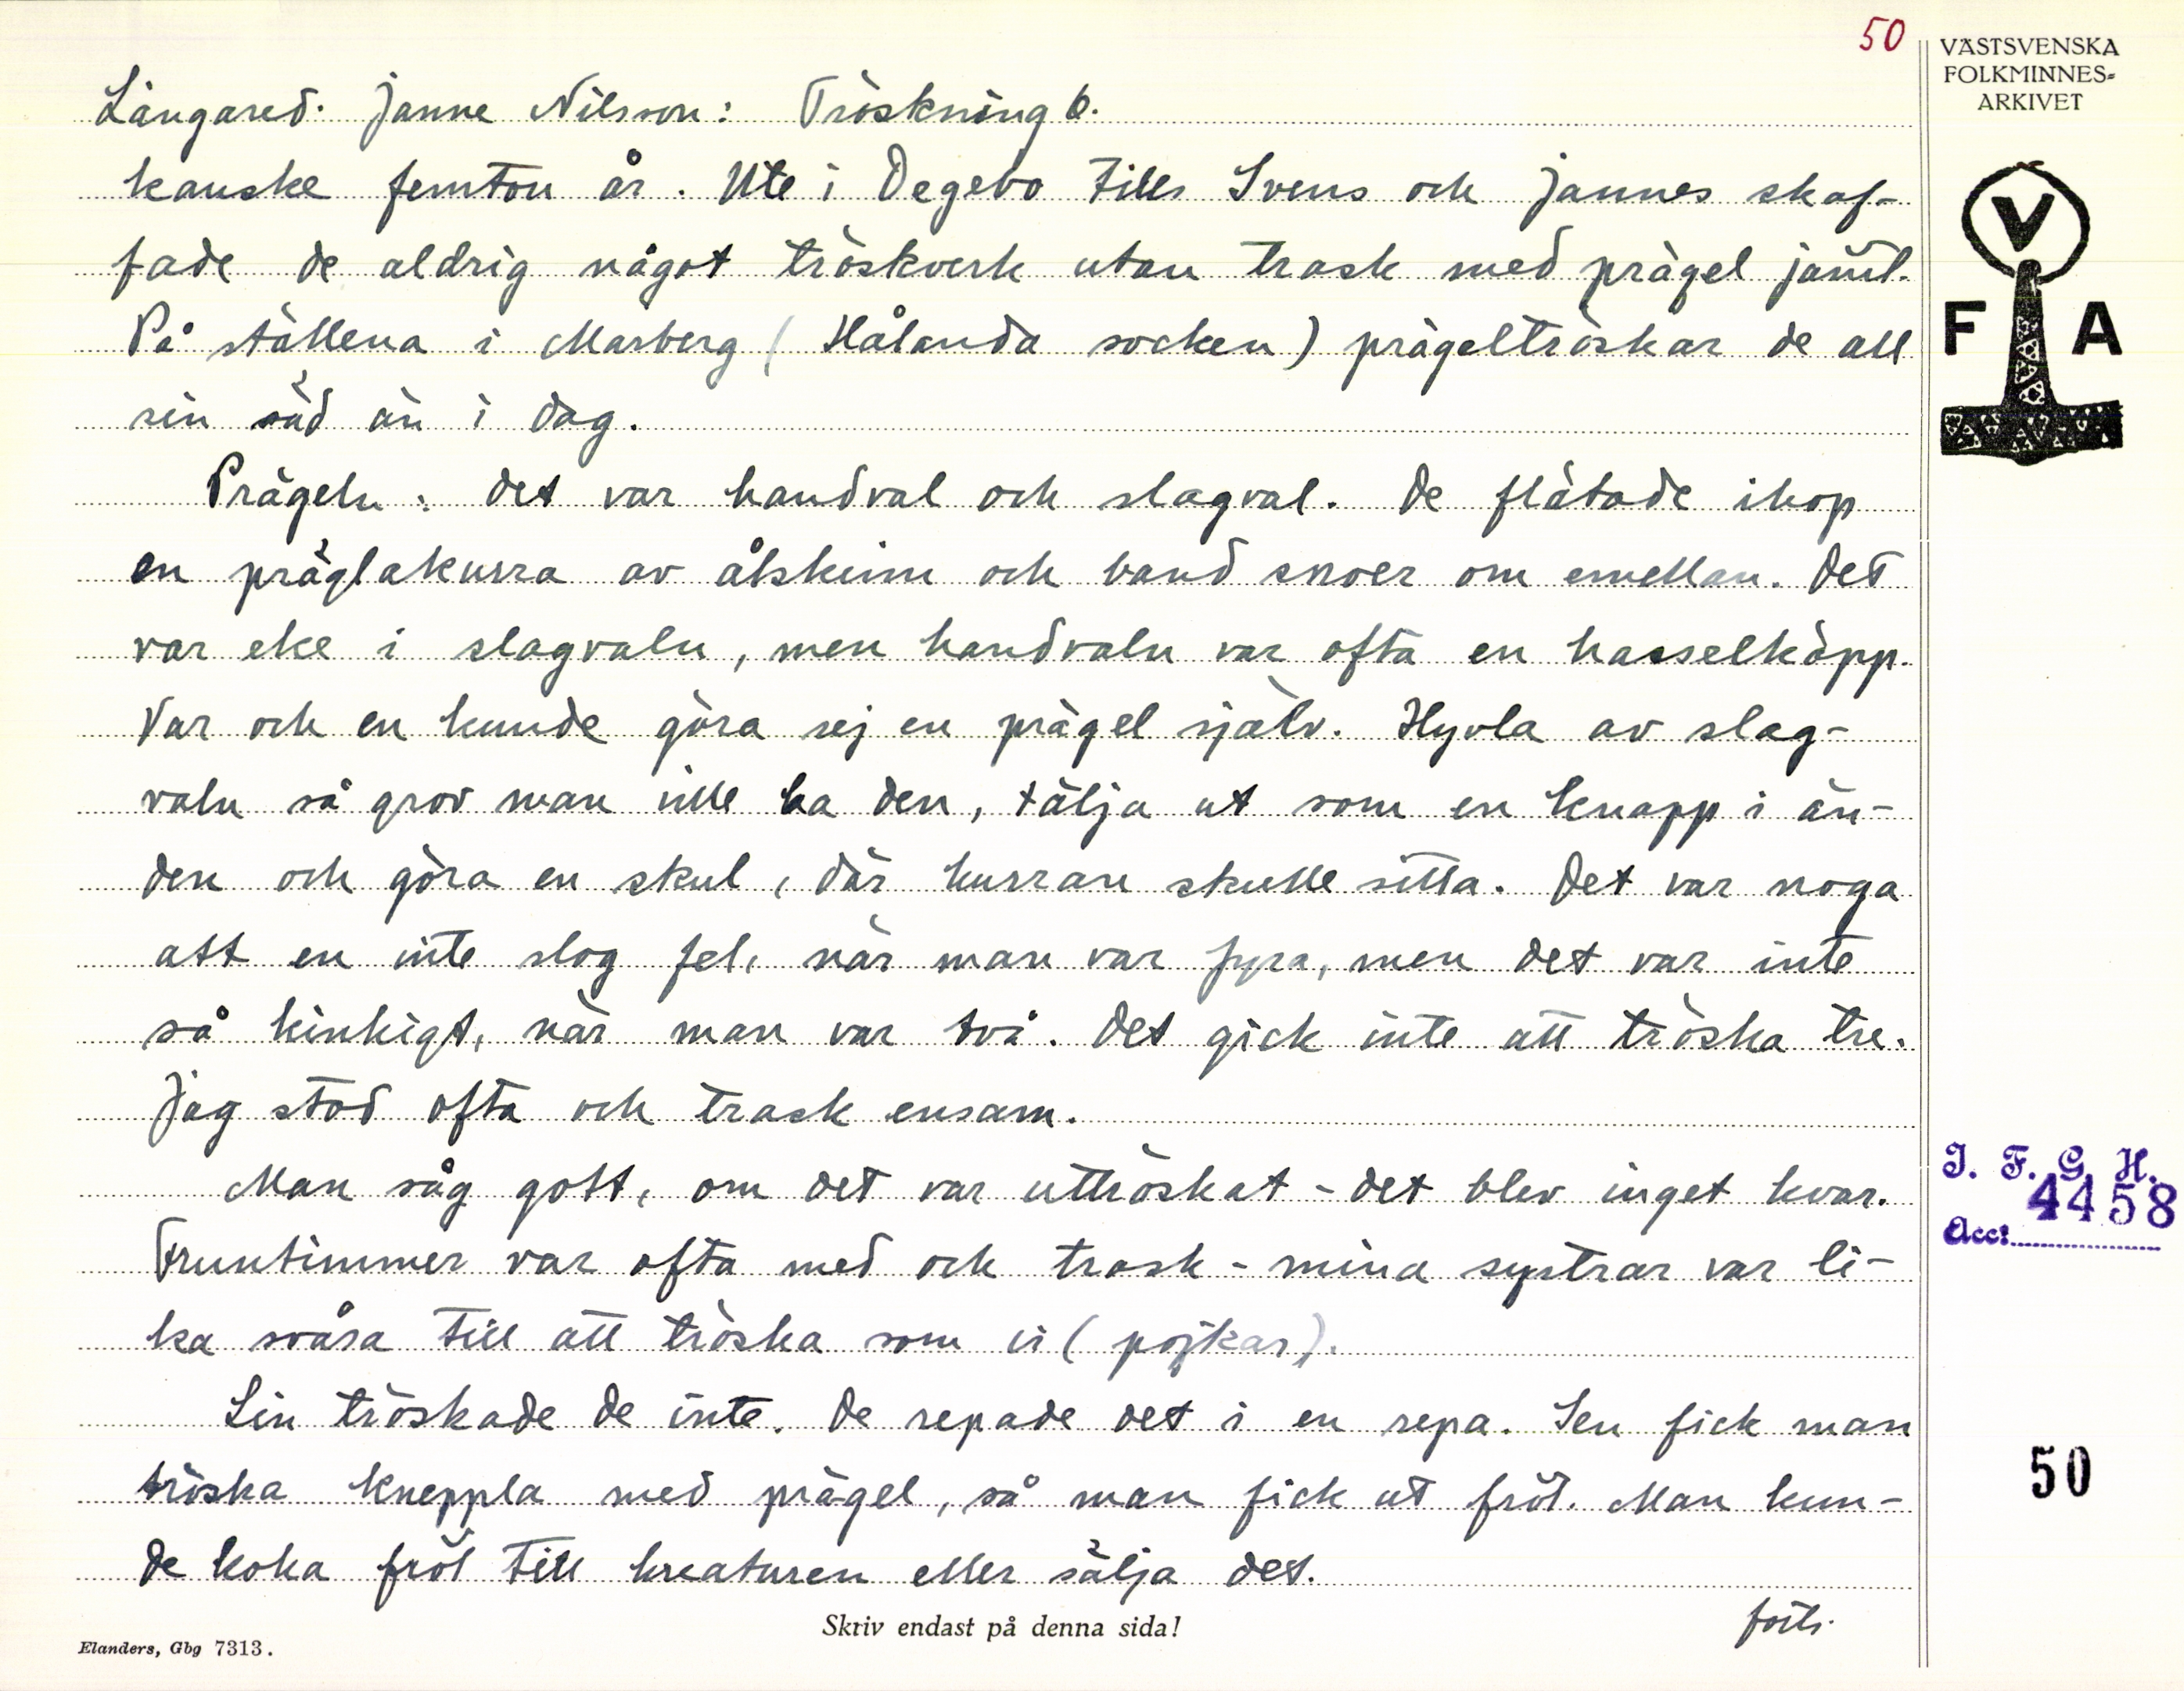 50
VÄSTSVENSKA
FOLKMINNES-
ARKIVET
Långared. Janne Nilsson: Tröskning 6.
kanske femton år. Ute i Degebo tills Svens och Jannes skaf-
fade de aldrig något tröskverk utan trask med prägel jämt.
På ställena i Marberg (Hålanda socken) prägeltröskar de all
sin säd än i dag.
V
F A
Prägeln: det var handval och slagval. De flätade ihop
en präglakurra av ålskinn och band snoer om emellan. Det
var eke i slagvaln, men handvaln var ofta en hasselkäpp.
Var och en kunde göra sej en prägel själv. Hyvla av slag-
valn så grov man ville ha den, tälja ut som en knapp i än-
den och göra en skul, där kurran skulle sitta. Det var noga
att en inte slog fel, när man var fyra, men det var inte
så kinkigt, när man var två. Det gick inte att tröska tre.
Jag stod ofta och trask ensam.
Man såg gott, om det var uttröskat - det blev inget kvar.
Fruntimmer var ofta med och trask - mina systrar var li-
ka svåra till att tröska som vi (pojkar).
I. F. G. H.
Acc: 4458
Lin tröskade de inte. De repade det i en repa. Sen fick man
tröska kneppla med prägel, så man fick ut fröt. Man kun-
de koka fröt till kreaturen eller sälja det.
50
forts.
Skriv endast på denna sida!
Elanders, Gbg 7313.